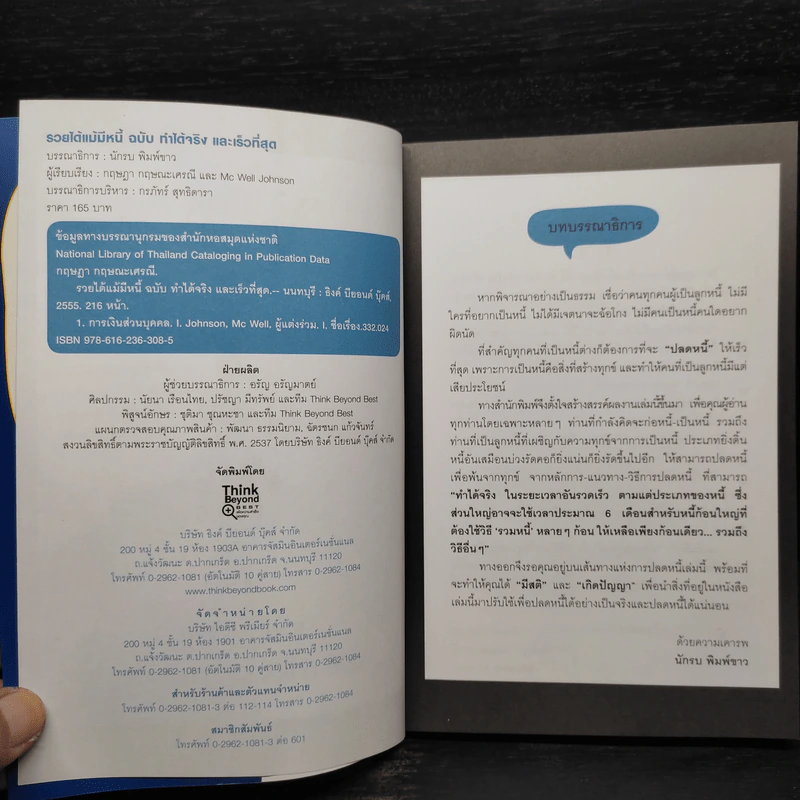 รวยได้แม้มีหนี้ ฉบับ ทำได้จริง และเร็วที่สุด
บรรณาธิการ : นักรบ พิมพ์ขาว
ผู้เรียบเรียง : กฤษฎา กฤษณะเศรณี และ Mc Well Johnson
บรรณาธิการบริหาร : กรภัทร์ สุทธิดารา
ราคา 165 บาท
ข้อมูลทางบรรณานุกรมของสำนักหอสมุดแห่งชาติ
National Library of Thailand Cataloging in Publication Data
กฤษฎา กฤษณะเศรณี.
รวยได้แม้มีหนี้ ฉบับ ทำได้จริง และเร็วที่สุด.-- นนทบุรี : ธิงค์ บียอนด์ บุ๊คส์,
2555. 216 หน้า.
1. การเงินส่วนบุคคล. I. Johnson, Mc Well, ผู้แต่งร่วม. I. ชื่อเรื่อง.332.024
ISBN 978-616-236-308-5
ฝ่ายผลิต
ผู้ช่วยบรรณาธิการ : อรัญ อรัญมาตย์
ศิลปกรรม : นัยนา เรือนไทย, ปรัชญา มีทรัพย์ และทีม Think Beyond Best
พิสูจน์อักษร : ชุติมา ชุณหะชา และทีม Think Beyond Best
แผนกตรวจสอบคุณภาพสินค้า : พัฒนา ธรรมนิยาม, ฉัตรชนก แก้วจันทร์
สงวนลิขสิทธิ์ตามพระราชบัญญัติลิขสิทธิ์ พ.ศ. 2537 โดยบริษัท ธิงค์ บียอนด์ บุ๊คส์ จำกัด
จัดพิมพ์โดย
Think
Beyond
BEST
บริษัท ธิงค์ บียอนด์ บุ๊คส์ จำกัด
200 หมู่ 4 ชั้น 19 ห้อง 1903A อาคารจัสมินอินเตอร์เนชั่นแนล
ถ.แจ้งวัฒนะ ต.ปากเกร็ด อ.ปากเกร็ด จ.นนทบุรี 11120
โทรศัพท์ 0-2962-1081 (อัตโนมัติ 10 คู่สาย) โทรสาร 0-2962-1084
www.thinkbeyondbook.com
จัดจำหน่ายโดย
บริษัท ไอดีซี พรีเมียร์ จำกัด
200 หมู่ 4 ชั้น 19 ห้อง 1901 อาคารจัสมินอินเตอร์เนชั่นแนล
ถ.แจ้งวัฒนะ ต.ปากเกร็ด อ.ปากเกร็ด จ.นนทบุรี 11120
โทรศัพท์ 0-2962-1081 (อัตโนมัติ 10 คู่สาย) โทรสาร 0-2962-1084
สำหรับร้านค้าและตัวแทนจำหน่าย
โทรศัพท์ 0-2962-1081-3 ต่อ 112-114 โทรสาร 0-2962-1084
สมาชิกสัมพันธ์
โทรศัพท์ 0-2962-1081-3 ต่อ 601
บทบรรณาธิการ
หากพิจารณาอย่างเป็นธรรม เชื่อว่าคนทุกคนผู้เป็นลูกหนี้ ไม่มี
ใครที่อยากเป็นหนี้ ไม่ได้มีเจตนาจะฉ้อโกง ไม่มีคนเป็นหนี้คนใดอยาก
ผิดนัด
ที่สำคัญทุกคนที่เป็นหนี้ต่างก็ต้องการที่จะ “ปลดหนี้” ให้เร็ว
ที่สุด เพราะการเป็นหนี้คือสิ่งที่สร้างทุกข์ และทำให้คนที่เป็นลูกหนี้มีแต่
เสียประโยชน์
ทางสำนักพิมพ์จึงตั้งใจสร้างสรรค์ผลงานเล่มนี้ขึ้นมา เพื่อคุณผู้อ่าน
ทุกท่านโดยเฉพาะหลายๆ ท่านที่กำลังคิดจะก่อหนี้-เป็นหนี้ รวมถึง
ท่านที่เป็นลูกหนี้ที่เผชิญกับความทุกข์จากการเป็นหนี้ ประเภทยิ่งดิ้น
หนี้อันเสมือนบ่วงรัดคอก็ยิ่งแน่นก็ยิ่งรัดขึ้นไปอีก ให้สามารถปลดหนี้
เพื่อพ้นจากทุกข์ จากหลักการ-แนวทาง-วิธีการปลดหนี้ ที่สามารถ
“ทำได้จริง ในระยะเวลาอันรวดเร็ว ตามแต่ประเภทของหนี้ ซึ่ง
ส่วนใหญ่อาจจะใช้เวลาประมาณ 6 เดือนสำหรับหนี้ก้อนใหญ่ที่
ต้องใช้วิธี ‘รวมหนี้’ หลายๆ ก้อน ให้เหลือเพียงก้อนเดียว... รวมถึง
วิธีอื่นๆ”
ทางออกจึงรอคุณอยู่บนเส้นทางแห่งการปลดหนี้เล่มนี้ พร้อมที่
จะทำให้คุณได้ “มีสติ” และ “เกิดปัญญา” เพื่อนำสิ่งที่อยู่ในหนังสือ
เล่มนี้มาปรับใช้เพื่อปลดหนี้ได้อย่างเป็นจริงและปลดหนี้ได้แน่นอน
ด้วยความเคารพ
นักรบ พิมพ์ขาว